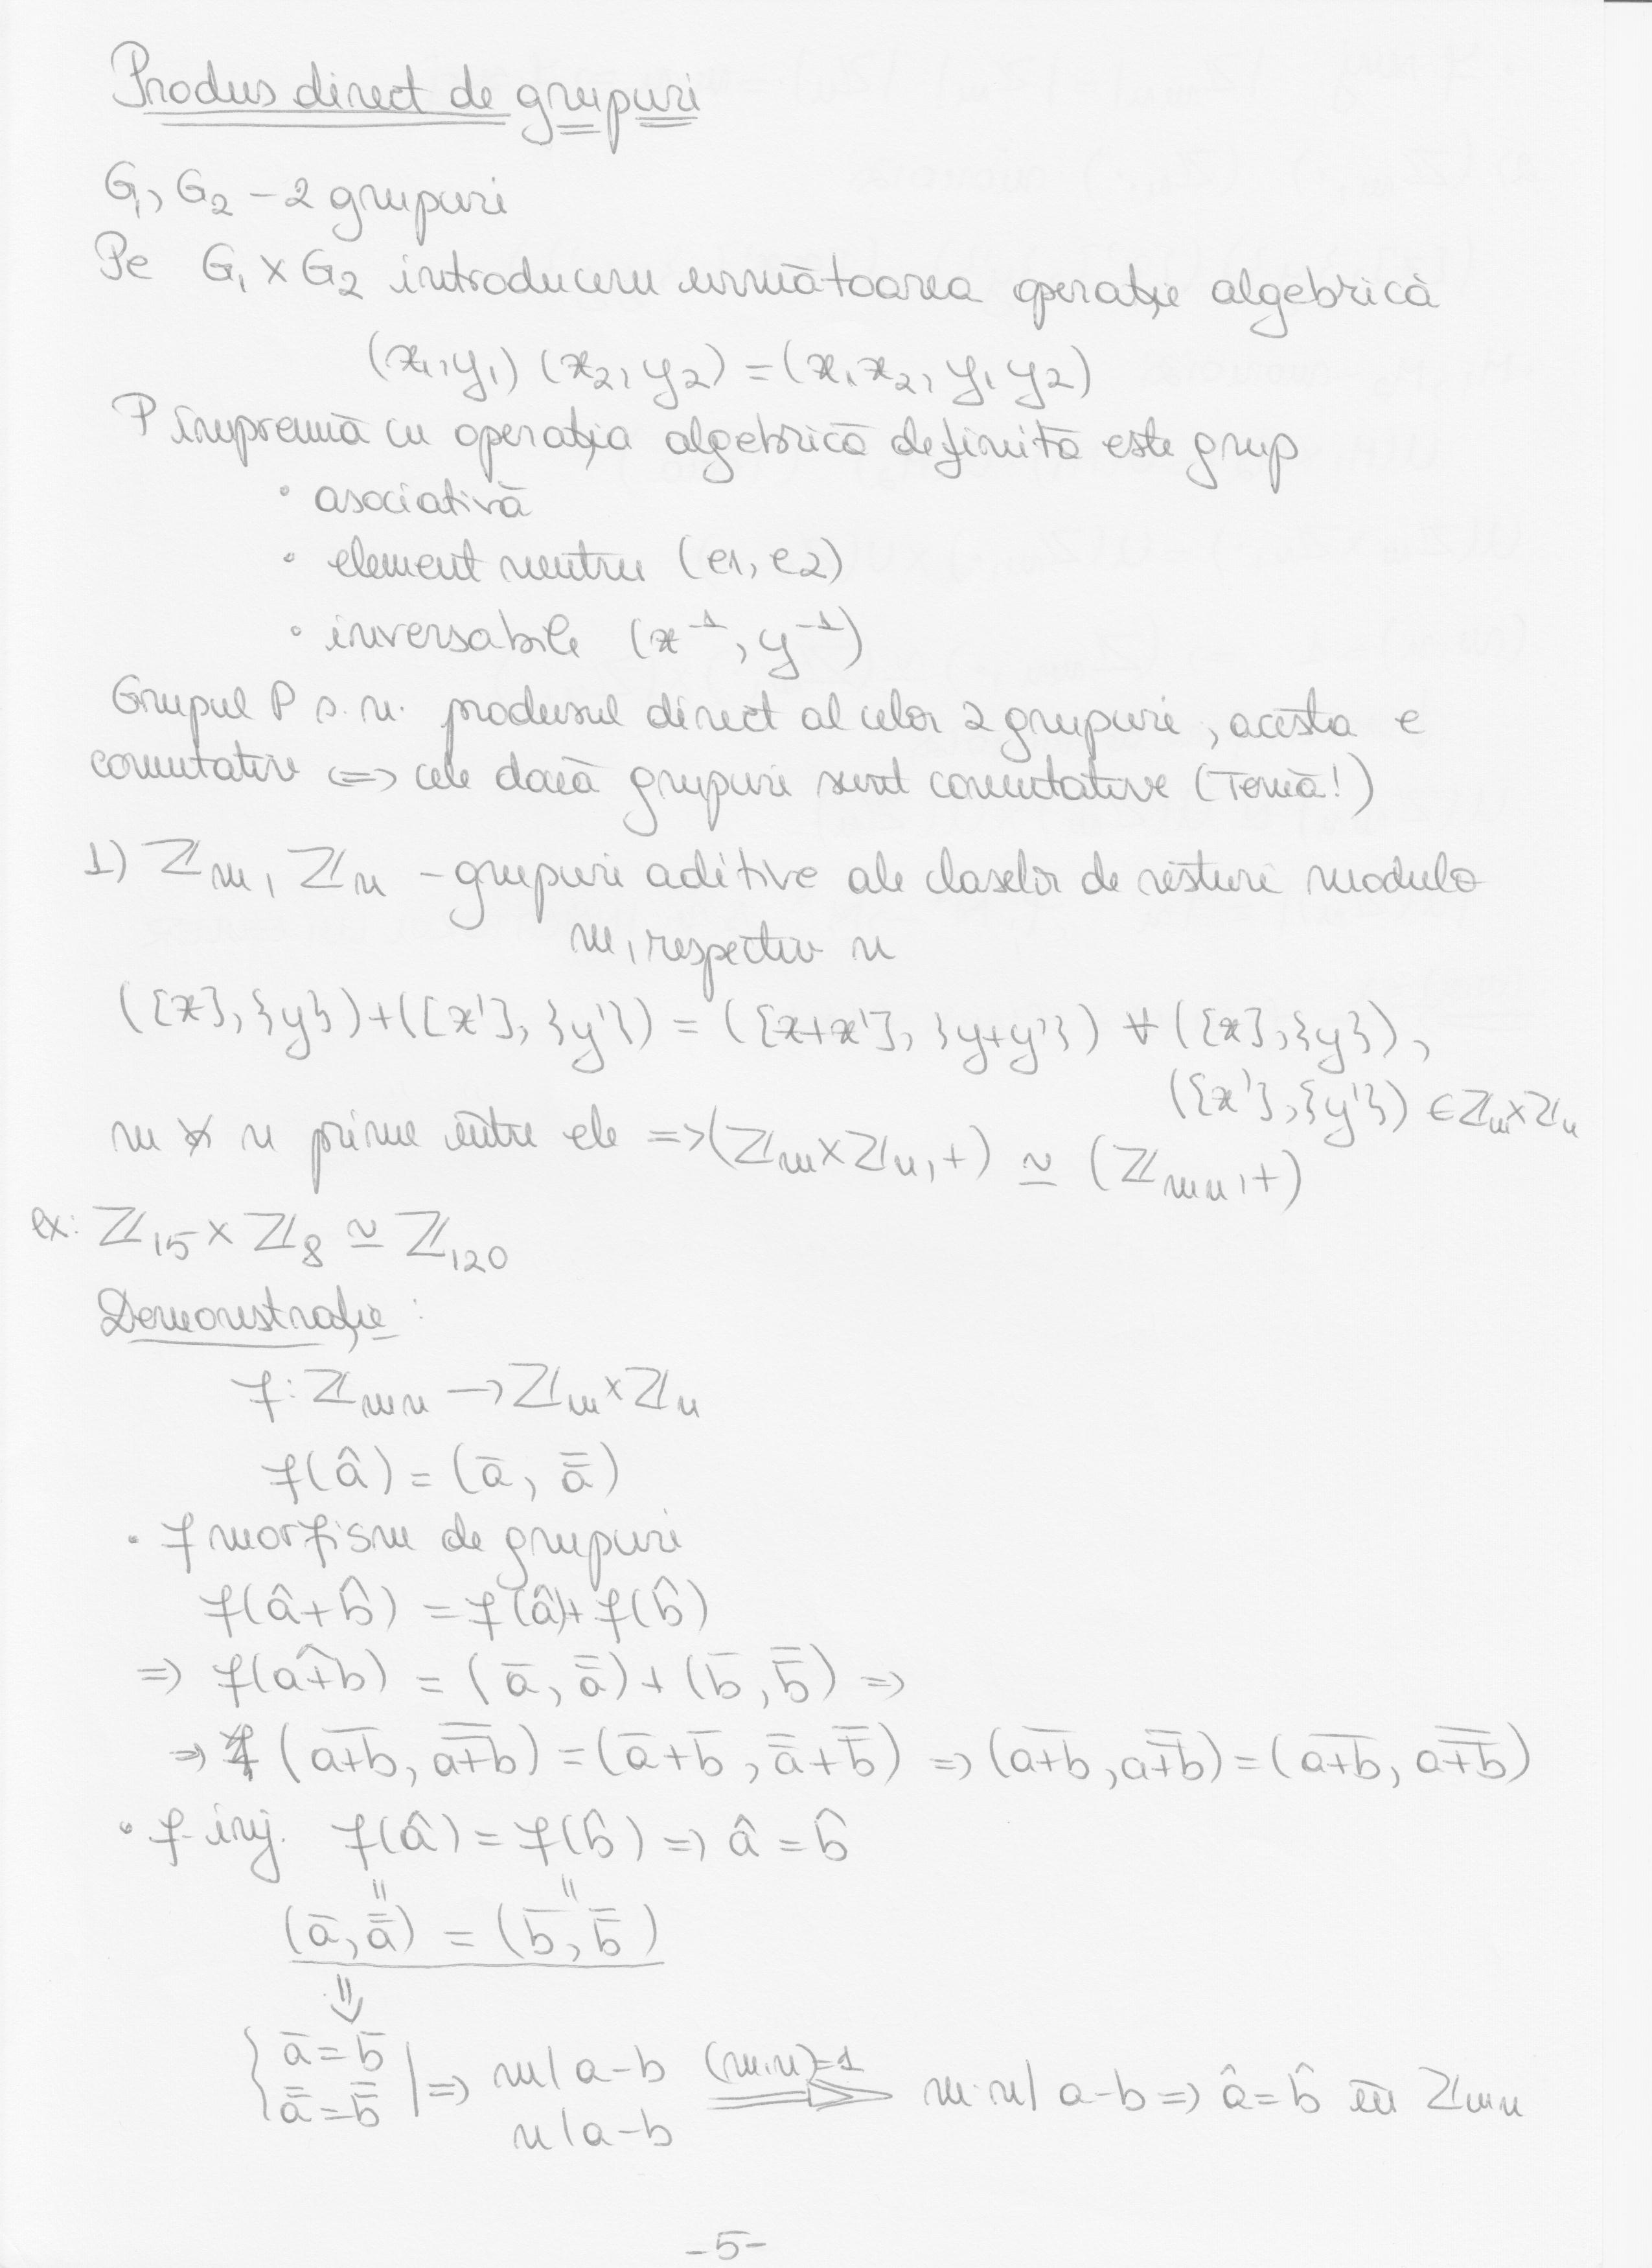 Produs direct de grupuri
G₁, G₂ – 2 grupuri
Pe G₁ × G₂ introducem următoarea operație algebrică
(x₁, y₁) (x₂, y₂) = (x₁x₂, y₁y₂)
P împreună cu operația algebrică definită este grup
• asociativă
• element neutru (e1, e2)
• inversabile (x⁻¹, y⁻¹)
Grupul P s.n. produsul direct al celor 2 grupuri, acesta e
comutativ <=> cele două grupuri sunt comutative (Temă!)
1) ℤm, ℤn – grupuri aditive ale claselor de resturi modulo
m, respectiv n
([x], {y}) + ([x'], {y'}) = ([x+x'], {y+y'}) ∀ ([x], {y}),
([x'], {y'}) ∈ ℤm×ℤn
m și n prime între ele => (ℤm×ℤn, +) ≃ (ℤmn, +)
ex: ℤ₁₅ × ℤ₈ ≃ ℤ₁₂₀
Demonstrație:
f: ℤmn → ℤm×ℤn
f(â) = (ā, a̿)
• f morfism de grupuri
f(â+b̂) = f(â) + f(b̂)
=> f(a+b^) = (ā, a̿) + (b̄, b̿) =>
=> (a+b‾, a+b‗) = (ā+b̄, a̿+b̿) => (a+b‾, a+b‗) = (a+b‾, a+b‗)
• f-inj. f(â) = f(b̂) => â = b̂
" "
(ā, a̿) = (b̄, b̿)
⇓
{ ā = b̄ | => m | a-b (m.n)=1 ==> m·n | a-b => â = b̂ în ℤmn
a̿ = b̿ n | a-b
-5-